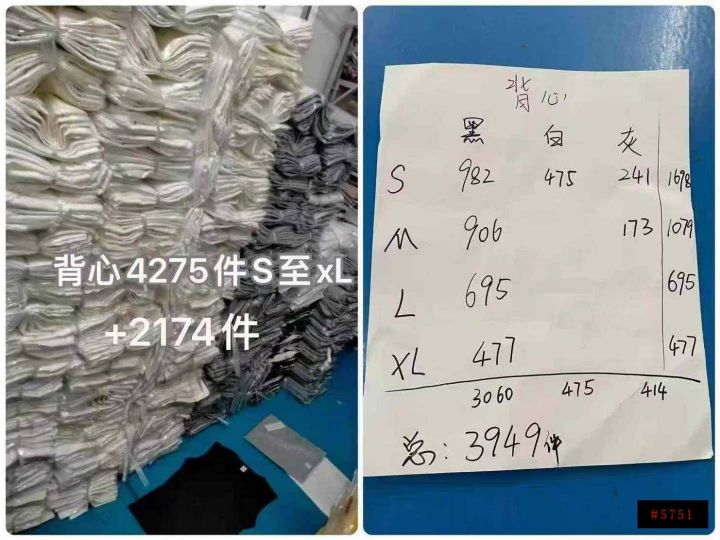 背心4275件S至xL
+2174件
背心
黑 白 灰
S 982 475 241 1698
M 906 173 1079
L 695 695
XL 477 477
3060 475 414
总:3949件
#5751